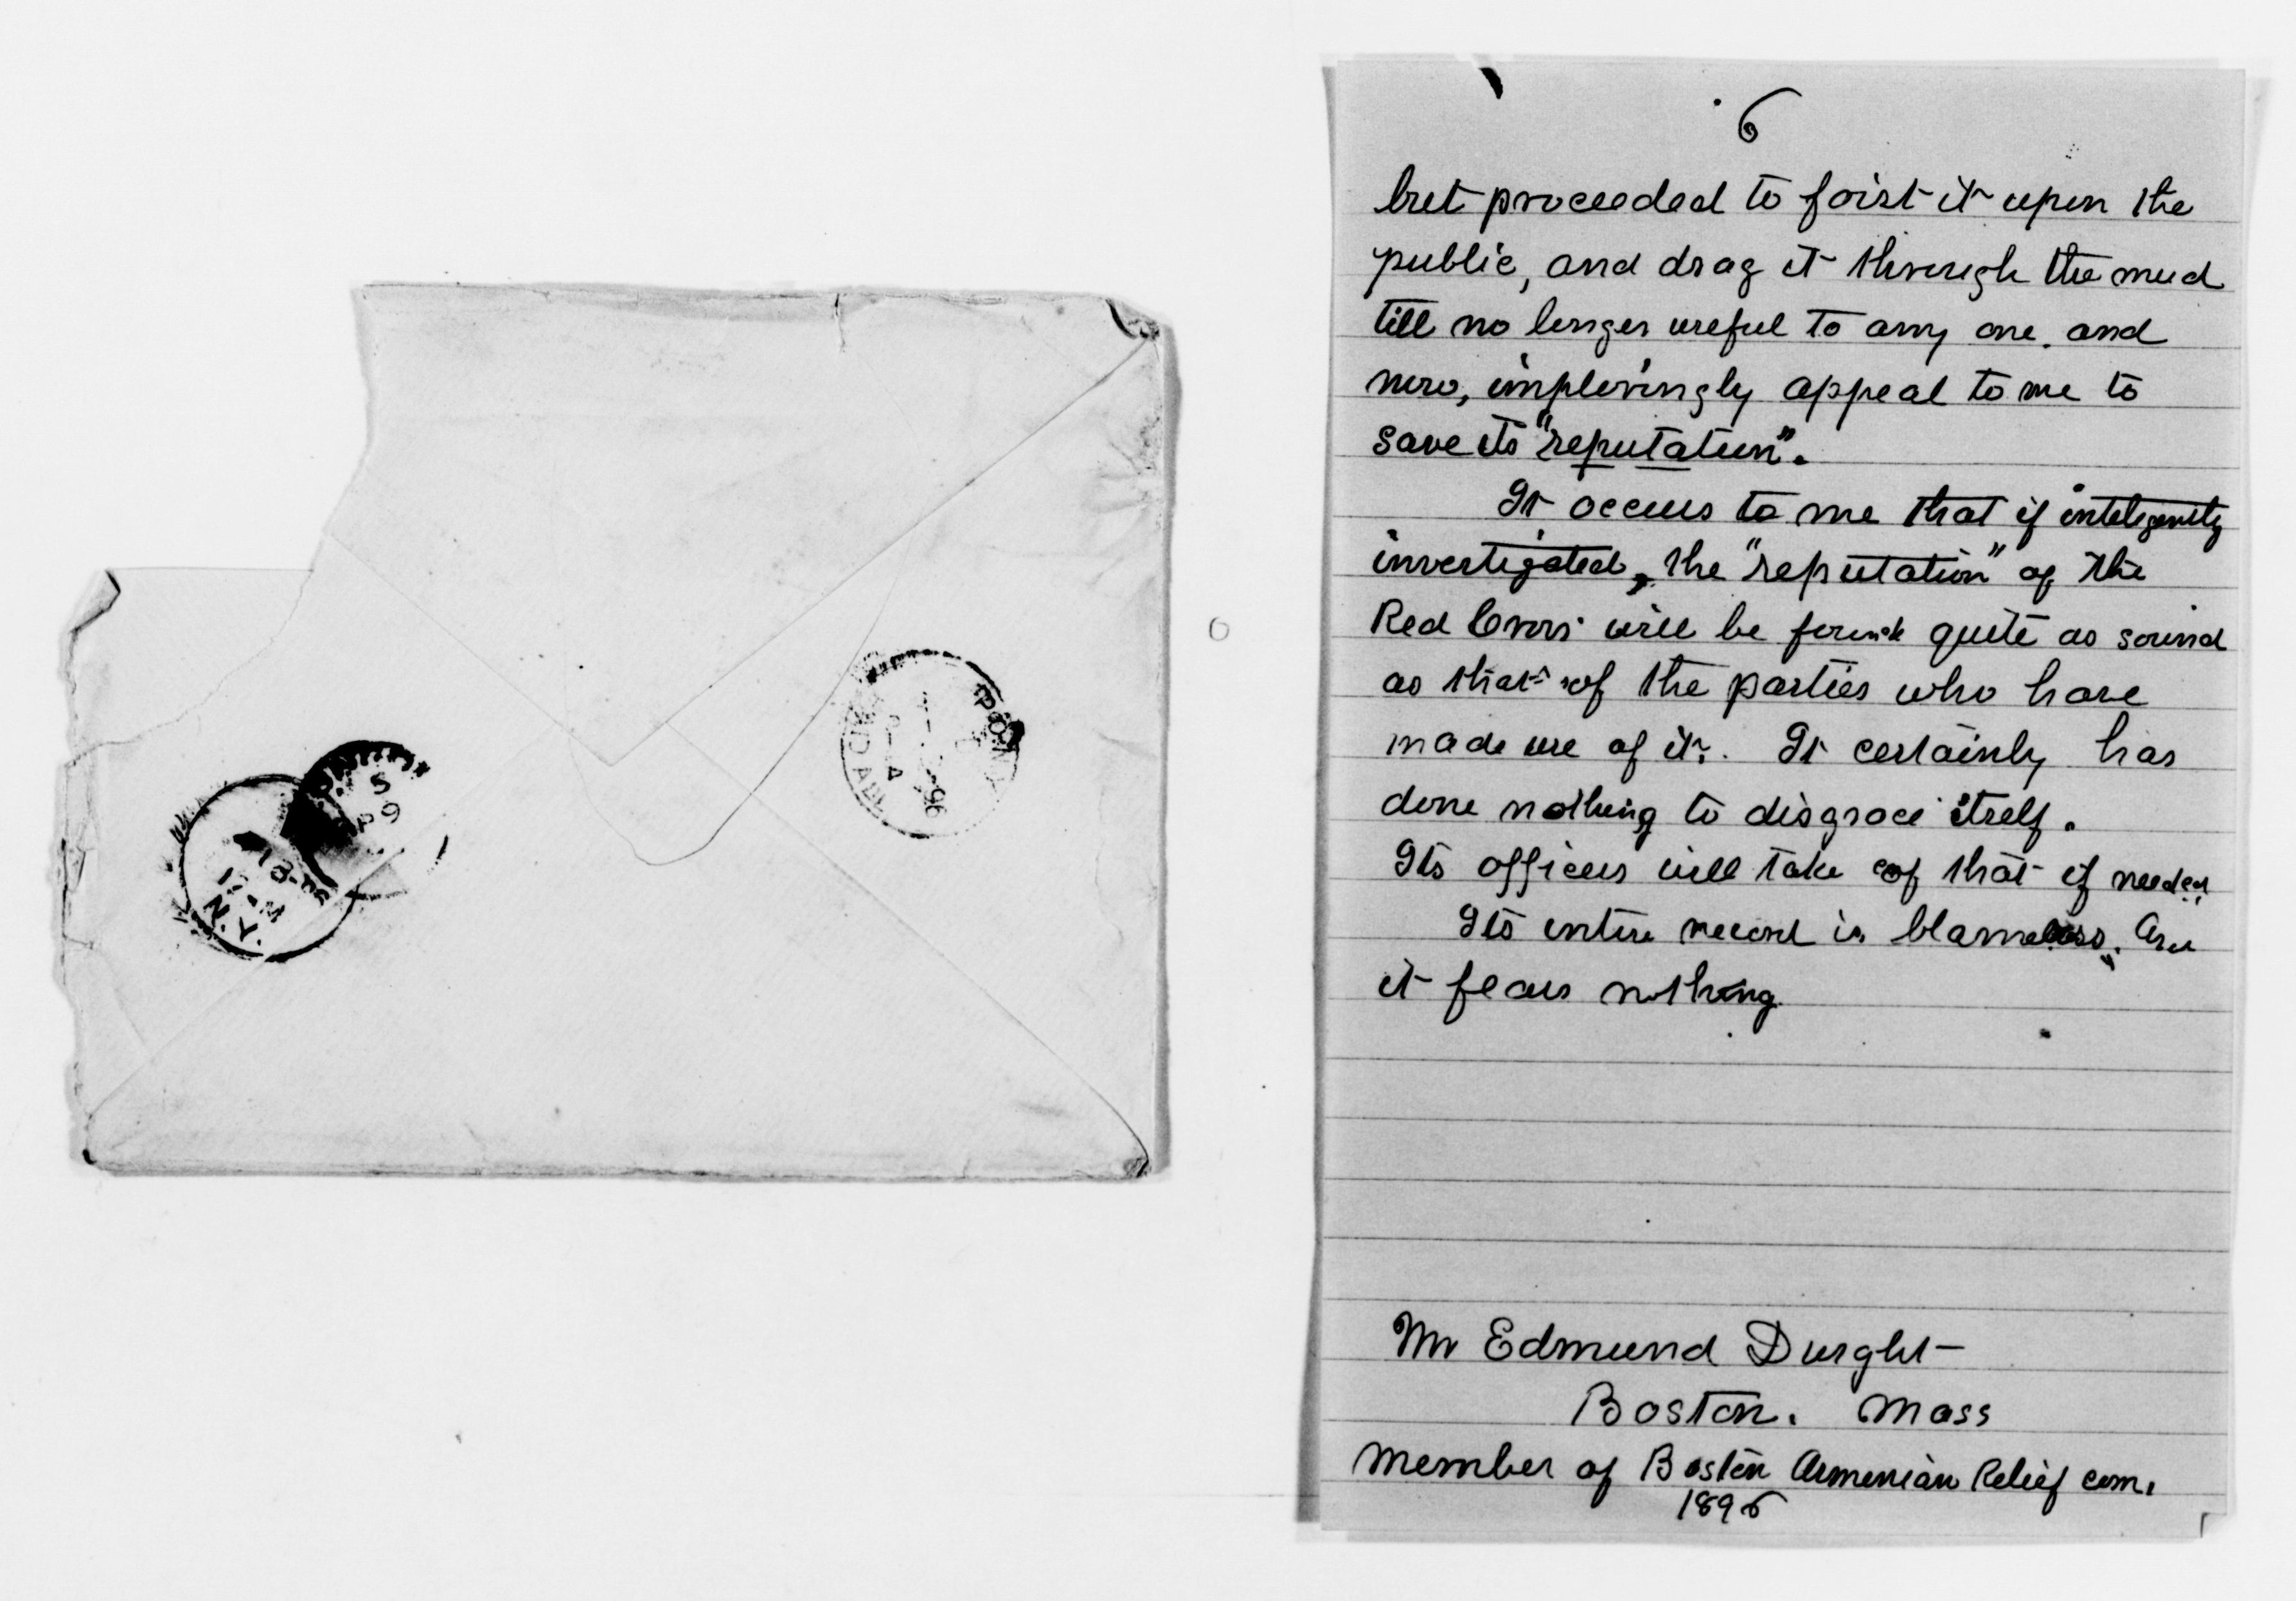 6
but proceeded to foist it upon the
public, and drag it through the mud
till no longer useful to any one. and
now, imploringly appeal to me to
save its "reputation".
It occurs to me that if inteligently
investigated, the "reputation" of the
Red Cross will be found quite as sound
as that of the parties who have
made use of it. It certainly has
done nothing to disgrace itself.
Its officers will take of that if needed.
Its entire record is blameless. And
it fears nothing
Mr Edmund Dwight
Boston. Mass
member of Boston Armenian Relief com.
1896
N.Y.
96